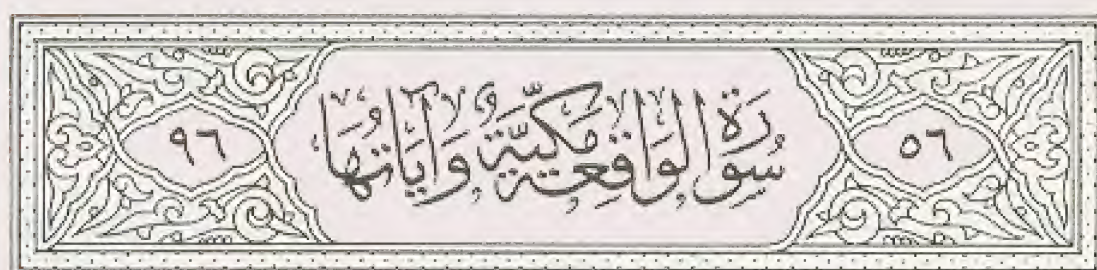 ٥٦ سُورَةُ الوَاقِعَةِ مَكِّيَّةٌ وَآيَاتُهَا ٩٦